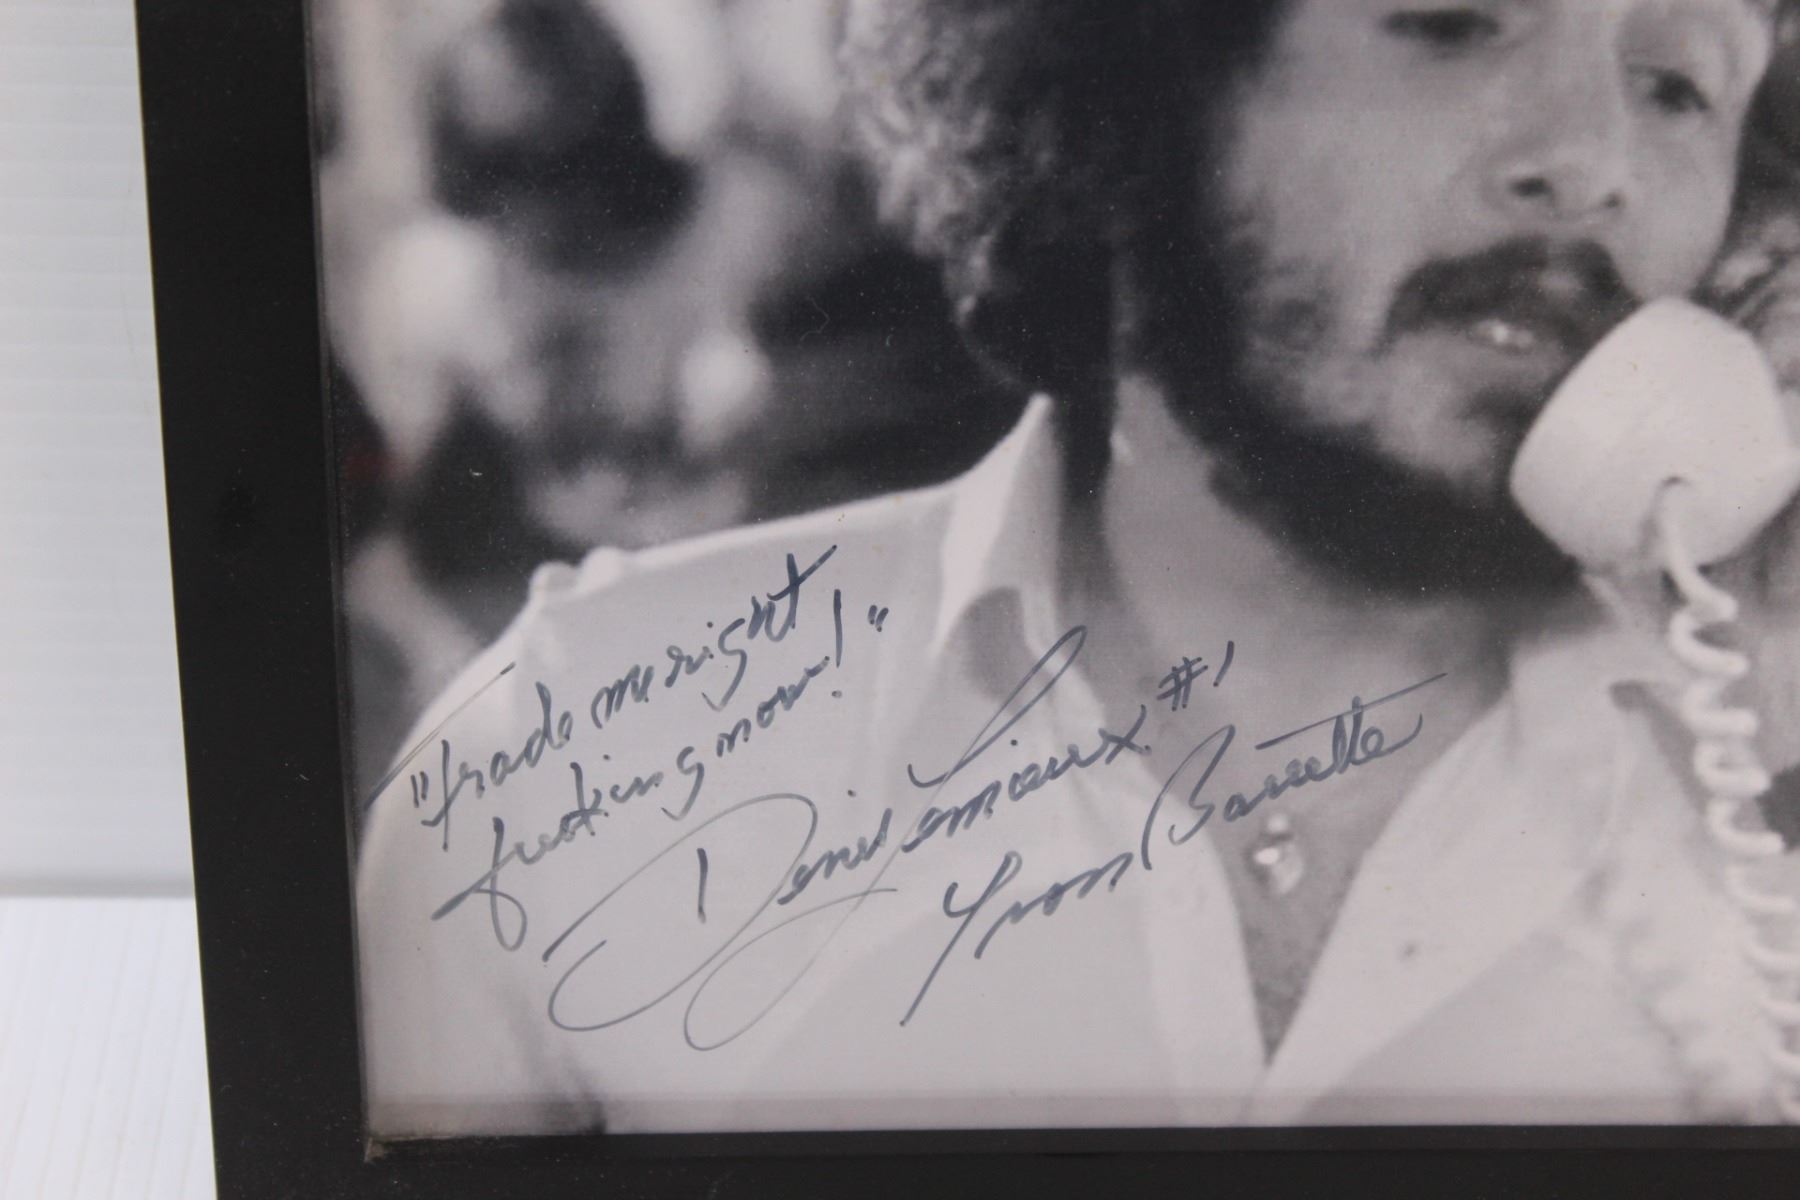 "Trade me right
fucking now!"
Denis Lemieux #1
From Barrette